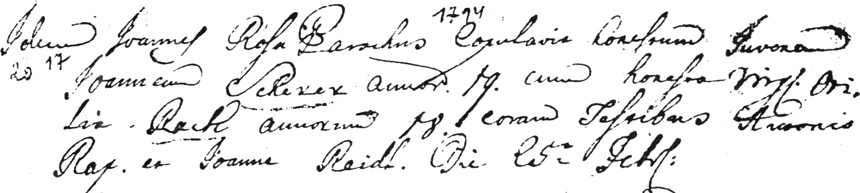 1794
Idem Joannes Rosa Parochus Copulavit honestum Juvenem
20 17 Joannem Scherer annor. 19. cum honesta Virg. Oti-
lia Rack annorum 18. coram Testibus Antonio
Rap. et Joanne Reidl. Die 25ta Febr: